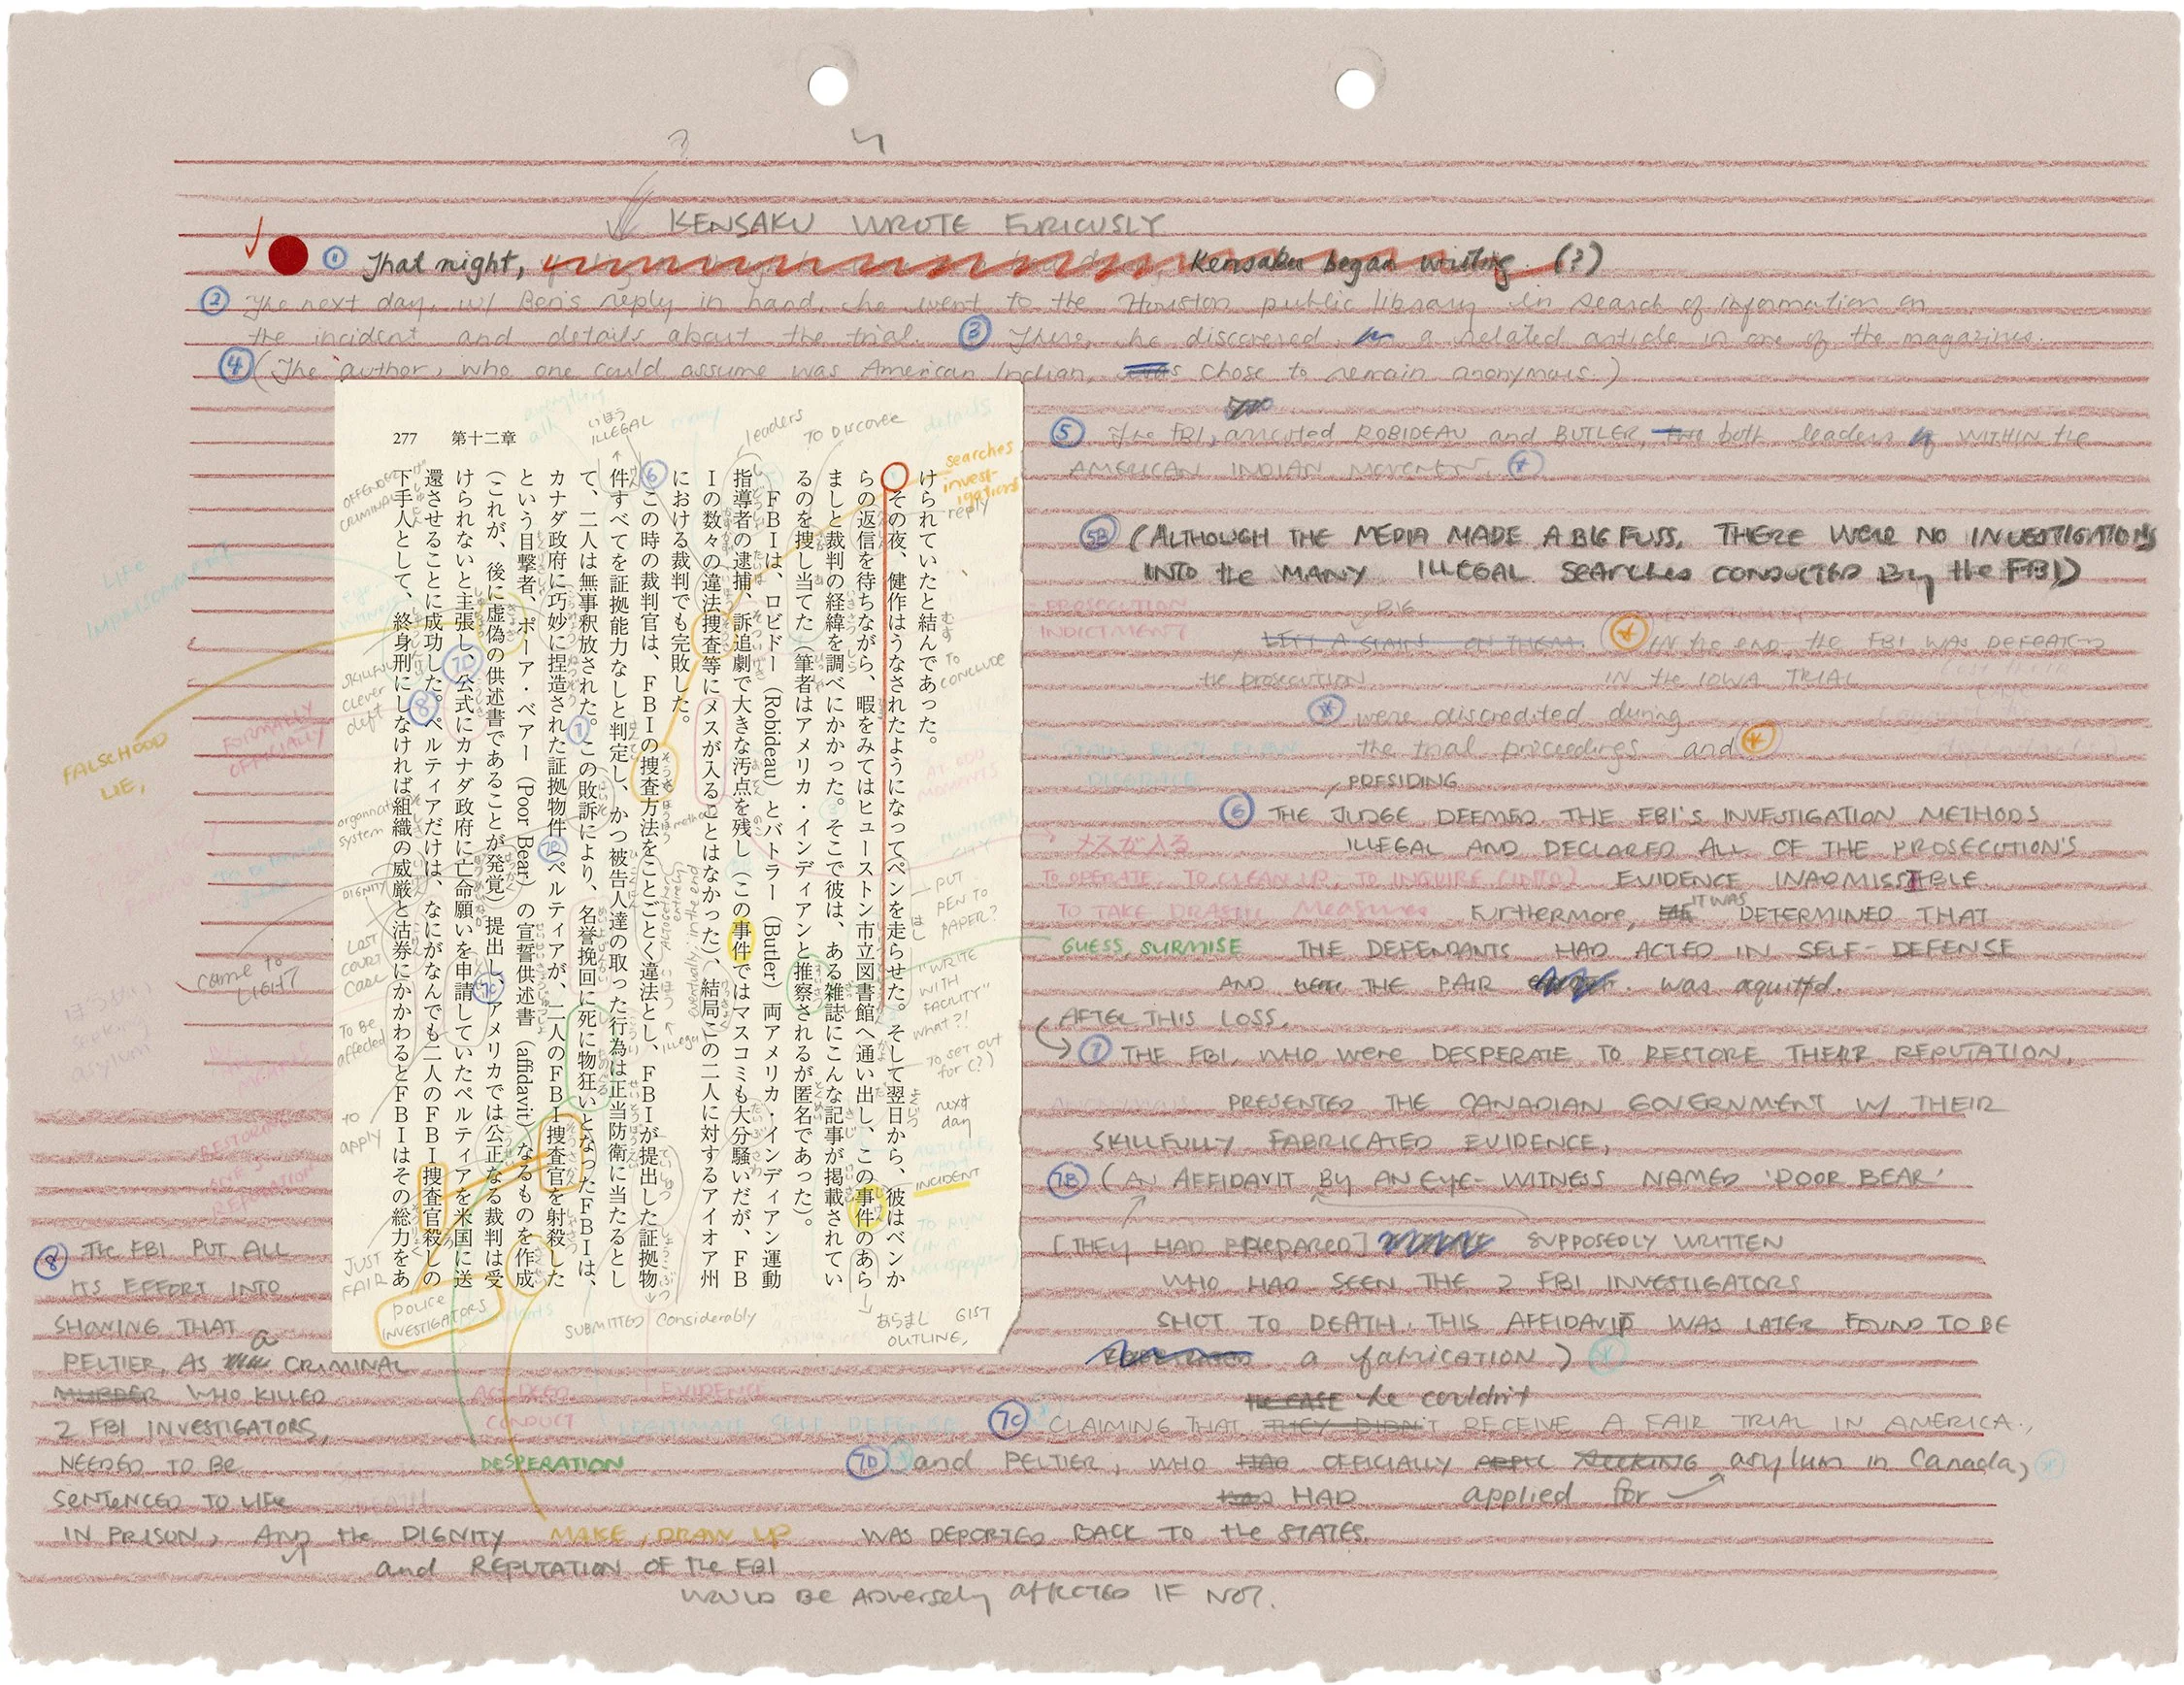 KENSAKU WROTE FURIOUSLY
① That night, Kensaku began writing. (?)
② The next day, w/ Ben's reply in hand, he went to the Houston public library in search of information on
the incident and details about the trial. ③ There, he discovered a related article in one of the magazines.
④ (The author, who one could assume was American Indian, chose to remain anonymous.)
⑤ The FBI, arrested ROBIDEAU and BUTLER, both leaders WITHIN the
AMERICAN INDIAN MOVEMENT.
5B (ALTHOUGH THE MEDIA MADE A BIG FUSS, THERE WERE NO INVESTIGATIONS
INTO the MANY ILLEGAL SEARCHES CONDUCTED By the FBI)
PROSECUTION
INDICTMENT
BIG
LEFT A STAIN ON THEM.
IN the end, the FBI WAS DEFEATED
the prosecution
IN the IOWA TRIAL
were discredited during
the trial proceedings and
DISGRACE
PRESIDING
⑥ THE JUDGE DEEMED THE FBI'S INVESTIGATION METHODS
メスが入る
ILLEGAL AND DECLARED ALL OF THE PROSECUTION'S
TO OPERATE; TO CLEAN UP, TO INQUIRE (INTO)
EVIDENCE INADMISSIBLE
TO TAKE DRASTIC Measures
FURTHERMORE, IT WAS DETERMINED THAT
GUESS, SURMISE
THE DEFENDANTS HAD ACTED IN SELF-DEFENSE
AND were THE PAIR was aquitted.
AFTER THIS LOSS,
⑦ THE FBI, WHO WERE DESPERATE TO RESTORE THEIR REPUTATION,
PRESENTED THE CANADIAN GOVERNMENT W/ THEIR
SKILLFULLY FABRICATED EVIDENCE,
7B (AN AFFIDAVIT BY AN EYE-WITNESS NAMED 'POOR BEAR'
[THEY HAD PREPARED] SUPPOSEDLY WRITTEN
WHO HAD SEEN THE 2 FBI INVESTIGATORS
SHOT TO DEATH. THIS AFFIDAVIT WAS LATER FOUND TO BE
a fabrication)
THE CASE he couldn't
7C CLAIMING THAT THEY DIDN'T RECEIVE A FAIR TRIAL IN AMERICA.,
7D and PELTIER, WHO HAD OFFICIALLY SEEKING asylum in Canada,
HAD applied for
WAS DEPORTED BACK TO the STATES.
⑧ The FBI PUT ALL
ITS EFFORT INTO
SHOWING THAT
PELTIER, AS a CRIMINAL
MURDER WHO KILLED
2 FBI INVESTIGATORS,
NEEDED TO BE
SENTENCED TO LIFE
IN PRISON, AND the DIGNITY
and REPUTATION OF the FBI
WOULD BE ADVERSELY AFFECTED IF NOT.
277 第十二章
けられていたと結んであった。
その夜、健作はうなされたようになってペンを走らせた。そして翌日から、彼はベンか
らの返信を待ちながら、暇をみてはヒューストン市立図書館へ通い出し、この事件のあら
ましと裁判の経緯を調べにかかった。そこで彼は、ある雑誌にこんな記事が掲載されてい
るのを捜し当てた（筆者はアメリカ・インディアンと推察されるが匿名であった）。
FBIは、ロビドー（Robideau）とバトラー（Butler）両アメリカ・インディアン運動
指導者の逮捕、訴追劇で大きな汚点を残し（この事件ではマスコミも大分騒いだが、FB
Iの数々の違法捜査等にメスが入ることはなかった）、結局この二人に対するアイオア州
における裁判でも完敗した。
この時の裁判官は、FBIの捜査方法をことごとく違法とし、FBIが提出した証拠物
件すべてを証拠能力なしと判定し、かつ被告人達の取った行為は正当防衛に当たるとし
て、二人は無事釈放された。この敗訴により、名誉挽回に死に物狂いとなったFBIは、
カナダ政府に巧妙に捏造された証拠物件（ペルティアが、二人のFBI捜査官を射殺した
という目撃者、ポーア・ベアー（Poor Bear）の宣誓供述書（affidavit）なるものを作成
（これが、後に虚偽の供述書であることが発覚）提出し、アメリカでは公正なる裁判は受
けられないと主張し、公式にカナダ政府に亡命願いを申請していたペルティアを米国に送
還させることに成功した。ペルティアだけは、なにがなんでも二人のFBI捜査官殺しの
下手人として、終身刑にしなければ組織の威厳と沽券にかかわるとFBIはその総力をあ
いほう
ILLEGAL
leaders
TO DISCOVER
details
searches
investigations
reply
むすぶ
TO
CONCLUDE
AT ODD
MOMENTS
PUT
PEN TO
PAPER?
"WRITE
WITH
FACILITY"
what?!
TO SET OUT
for (?)
next
day
INCIDENT
あらまし GIST
OUTLINE,
OFFENDER
CRIMINAL
LIFE
IMPRISONMENT
SKILLFUL
clever
deft
FORMALLY
OFFICIALLY
FALSEHOOD
LIE,
organization
system
DIGNITY
LOST
COURT
CASE
came to
LIGHT
TO BE
affected
TO
apply
JUST
FAIR
police
INVESTIGATORS
SUBMITTED
considerably
RESTORING
ONE'S
REPUTATION
ACT, DEED
CONDUCT
EVIDENCE
LEGITIMATE SELF DEFENSE
DESPERATION
MAKE, DRAW UP